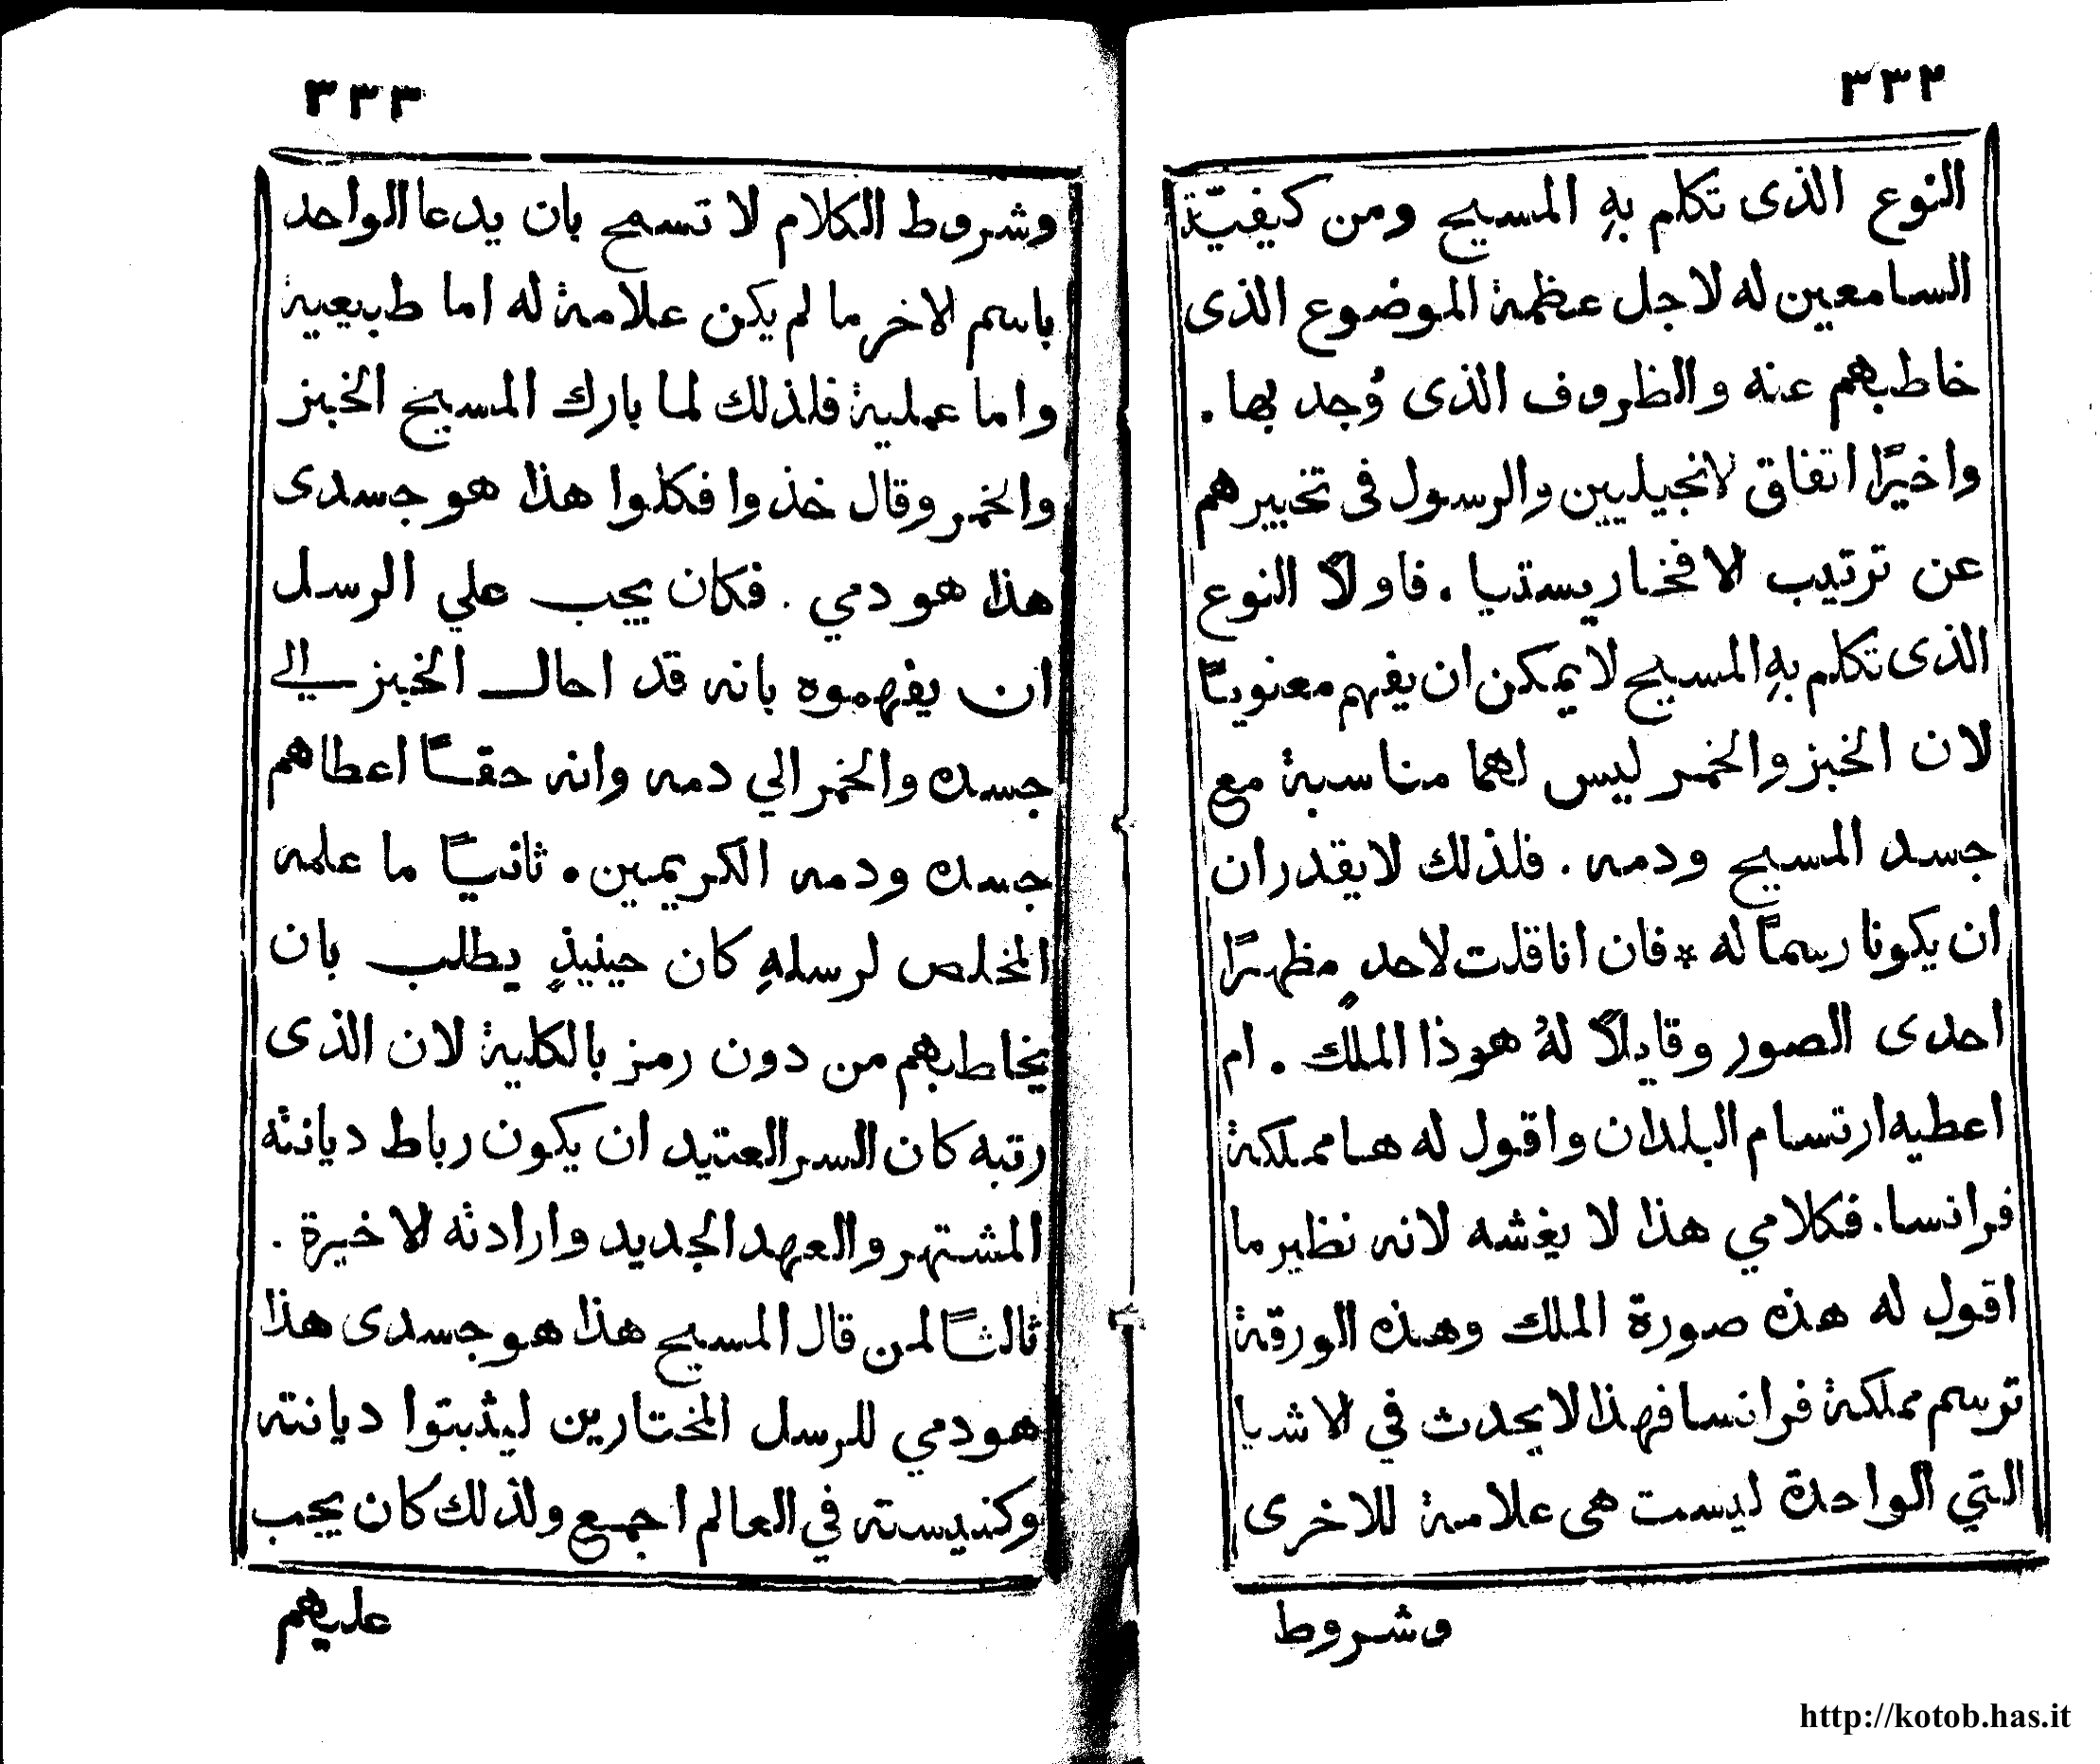 ٣٣٢
النوع الذى تكلم بهِ المسيح ومن كيفيّة
السامعين له لاجل عظمة الموضوع الذى
خاطبهم عنه والظروف الذى وُجد بها .
واخيرًا اتفاق لانجيليين والرسول فى تخييرهم
عن ترتيب لافخاريستيا . فاولاً النوع
الذى تكلم بهِ المسيح لا يمكن ان يفهم معنويـًا
لان الخبز والخمر ليس لهما مناسبة مع
جسد المسيح ودمه . فلذلك لا يقدران
ان يكونا رسمـًا له * فان انا قلت لاحدٍ مظهرًا
احدى الصور وقايلاً لهُ هوذا الملك . ام
اعطيه ارتسام البلدان واقول له ها مملكة
فرانسا . فكلامي هذا لا يغشه لانه نظير ما
اقول له هذه صورة الملك وهذه الورقة
ترسم مملكة فرانسا فهذا لا يحدث في الاشيا
التي الواحدة ليست هى علامة للاخرى
وشروط
٣٣٣
وشروط الكلام لا تسمح بان يدعا الواحد
باسم لاخر ما لم يكن علامة له اما طبيعية
واما عملية فلذلك لما بارك المسيح الخبز
والخمر وقال خذوا فكلوا هذا هو جسدى
هذا هو دمي . فكان يجب علي الرسل
ان يفهموه بانه قد احال الخبز الي
جسده والخمر الي دمه وانه حقـًا اعطاهم
جسده ودمه الكريمين . ثانيـًا ما علمه
المخلص لرسلهِ كان حينيذٍ يطلب بان
يخاطبهم من دون رمز بالكلية لان الذى
رتبه كان السر العتيد ان يكون رباط ديانته
المشتهر والعهد الجديد وارادته لاخيرة .
ثالثـًا لمن قال المسيح هذا هو جسدى هذا
هو دمي للرسل المختارين ليثبتوا ديانته
وكنيسته في العالم اجمع ولذلك كان يجب
عليهم
http://kotob.has.it